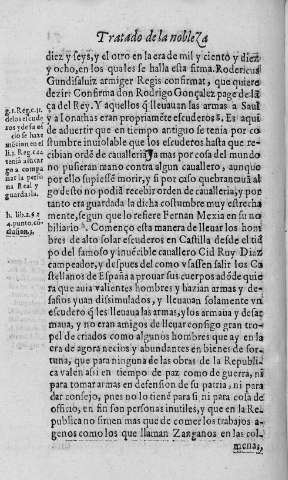 Tratado de la nobleza
diez y seys, y el otro en la era de mil y ciento y diez
y ocho, en los quales se halla esta firma. Rodericus
Gundisaluiz armiger Regis confirmat, que quiere
dezir: Confirma don Rodrigo Gonçalez page de la
ça del Rey. Y aquellos q̃ lleuauan las armas a Saul
y a Ionathas eran propriamẽte escuderos. Es aqui
de aduertir que en tiempo antiguo se tenia por co
stumbre inuiolable que los escuderos hasta que re-
cibian ordẽ de caualleria, mas por cosa del mundo
no pusieran mano contra algun cauallero, aunque
por ello supiesse morir, y si por caso quebrantauã al
go desto no podiã recebir orden de caualleria, y por
tanto era guardada la dicha costumbre muy estrecha
mente, segun que lo refiere Fernan Mexia en su no
biliario h. Começo esta manera de lleuar los hom-
bres de alto solar escuderos en Castilla desde el tiẽ
po del famoso y inuẽcible cauallero Cid Ruy Diaz
campeador, y despues del como vsassen salir los Ca
stellanos de España a prouar sus cuerpos adõde quie
ra que auia valientes hombres y hazian armas y de-
safios yuan dissimulados, y lleuauan solamente vn
escudero q̃ les lleuaua las armas, y los armaua y desar
maua, y no eran amigos de lleuar consigo gran tro-
pel de criados como algunos hombres que ay en la
era de agora necios y abundantes en bienes de for-
tuna, que para ninguna de las obras de la Republi
ca valen assi en tiempo de paz como de guerra, ni
para tomar armas en defension de su patria, ni para
dar consejo, pues no lo tienẽ para si, ni para cosa de
officio, en fin son personas inutiles, y que en la Re-
publica no siruen mas que de comer los trabajos a-
genos como los que llaman Zanganos en las col-
menas,
g. 1. Reg. c. 31.
de los escude
ros y de su of
cio se haze
h. lib. 2. c. 2
4. punto. cõ
clusion.